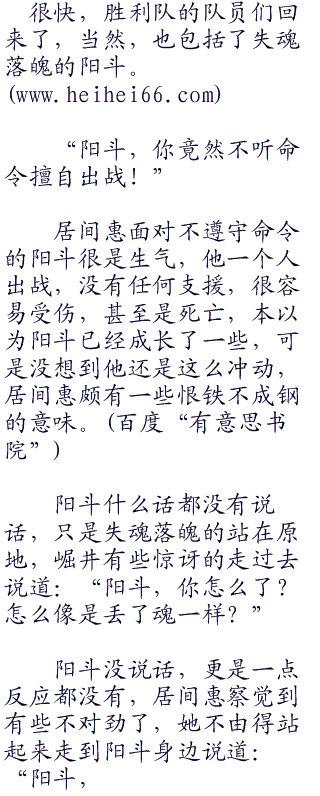 很快，胜利队的队员们回
来了，当然，也包括了失魂
落魄的阳斗。
(www.heihei66.com)
“阳斗，你竟然不听命
令擅自出战！”
居间惠面对不遵守命令
的阳斗很是生气，他一个人
出战，没有任何支援，很容
易受伤，甚至是死亡，本以
为阳斗已经成长了一些，可
是没想到他还是这么冲动，
居间惠颇有一些恨铁不成钢
的意味。(百度“有意思书
院”)
阳斗什么话都没有说
话，只是失魂落魄的站在原
地，崛井有些惊讶的走过去
说道：“阳斗，你怎么了？
怎么像是丢了魂一样？”
阳斗没说话，更是一点
反应都没有，居间惠察觉到
有些不对劲了，她不由得站
起来走到阳斗身边说道：
“阳斗，